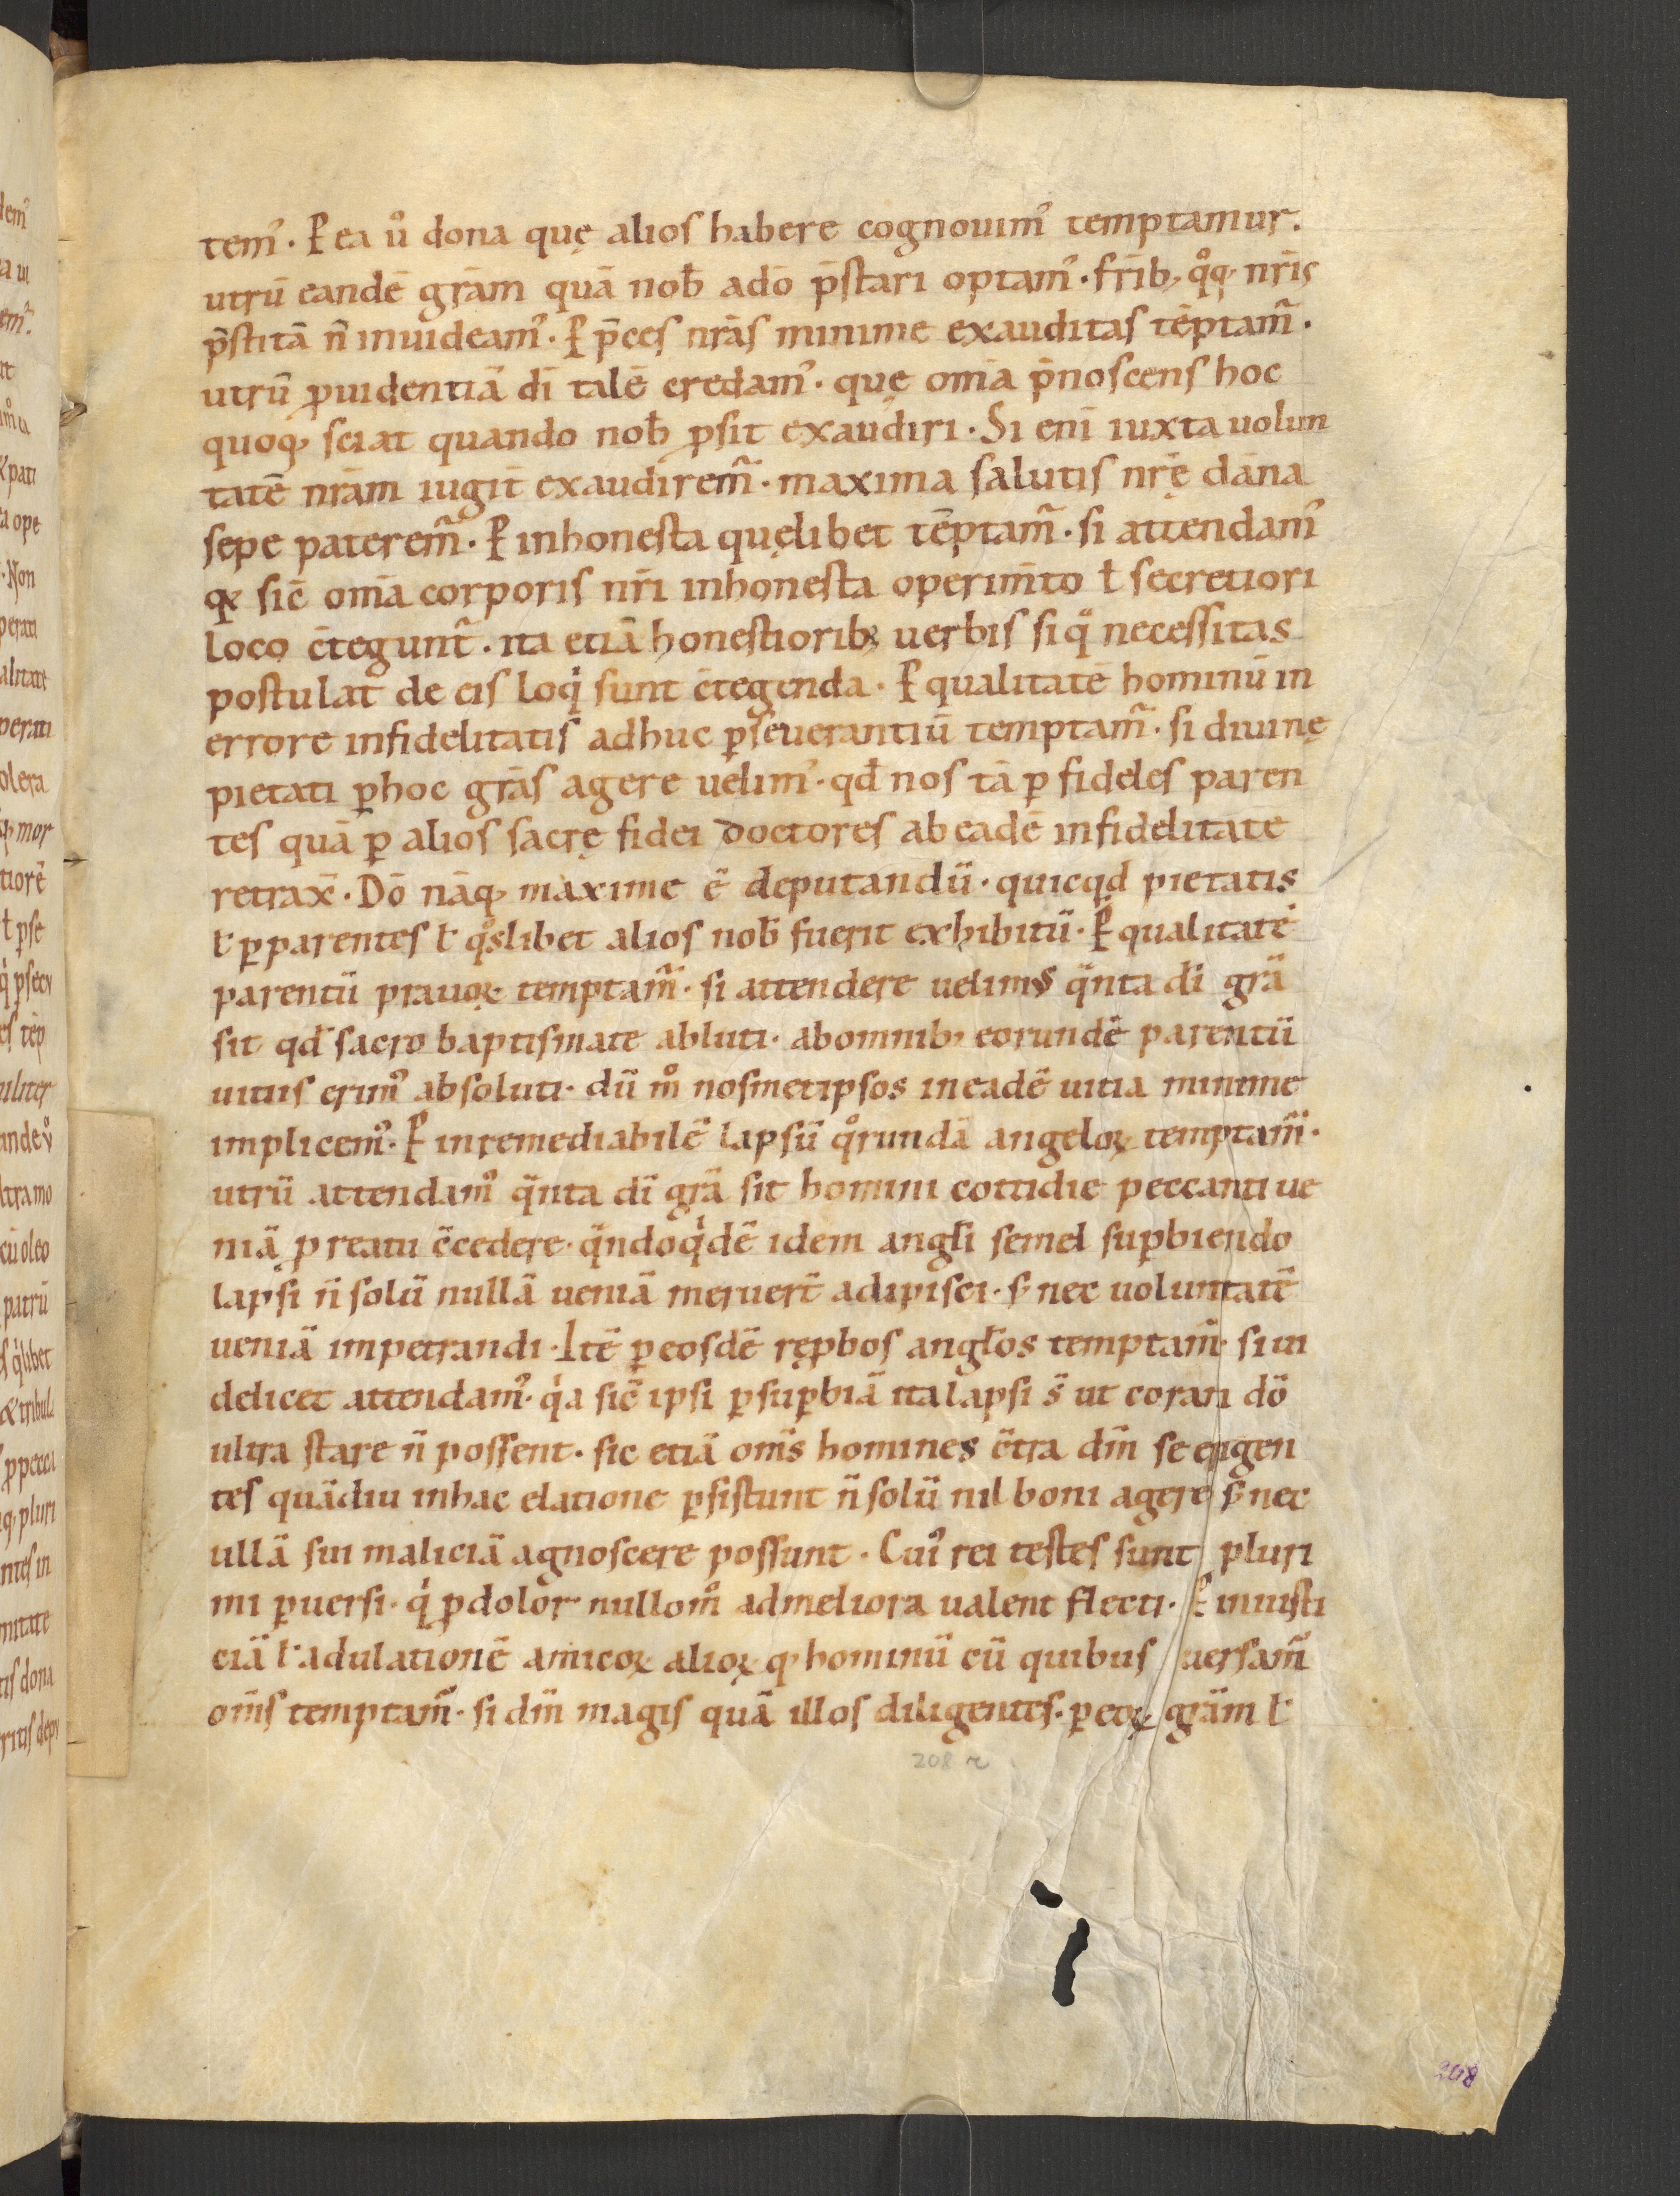 temꝰ · P ea ů dona quę alios habere cognouimꝰ temptamur.
utrū eandē grām quā nob̄ adō p̄stari optamꝰ · frīb, q̊q, nrīs
p̄stitā n̄ inuideamꝰ · P p̄ces nrās minime exauditas tēptam̃ ·
utrū ꝓuidentiā dī talē credamꝰ · quę om̄ia p̄noscens hoc
quoq, sciat quando nob̄ ꝓsit exaudiri · Si enī iuxta uolun
tatē nrām iugit̄ exaudirem̃ · maxima salutis nrę̄ dāna
sepe paterem̃ · P inhonesta quęlibet tēptam̃ · si attendamꝰ
qꝫ sic̄ om̄ia corporis nrī inhonesta operim̄to ł secretiori
loco c̄tegunt̃ · ita etiā honestiorib; uerbis siq̊ necessitas
postulat de eis loqͥ sunt c̄tegenda · P qualitatē hominū in
errore infidelitatis adhuc ꝑseuerantiū temptam̃ · si diuinę
pietati ꝑ hoc grās agere uelimꝰ · qđ nos tā ꝑ fideles paren
tes quā ꝑ alios sacrę fidei doctores ab eadē infidelitate
retrax̄ · Dō nāq, maxime ē deputandū · quicqd pietatis
ł ꝑ parentes ł q̊slibet alios nob̄ fuerit exhibitū · P qualitatē
parentū prauoꝝ temptam̃ · si attendere uelimꝰ q̈nta dī grā
sit qđ sacro baptismate abluti · ab omnib, eorundē parentū
uitiis erimꝰ absoluti · dū m̊ nosmetipsos in eadē uitia minime
implicemꝰ · P inremediabilē lapsū q̊rundā angeloꝝ temptam̃ ·
utrū attendamꝰ q̈nta dī grā sit homini cottidie peccanti ue
niā ꝓ reatu c̄cedere · q̈ndoqͥdē idem angłi semel suꝑbiendo
lapsi n̄ solū nullā ueniā meruer̄ adipisci · s; nec uoluntatē
ueniā impetrandi · Itē ꝑ eosdē rępbos angłos temptam̃ · si ui
delicet attendamꝰ · qͥa sic̄ ipsi ꝑ suꝑbiā ita lapsi s̄ ut coram dō
ultra stare n̄ possent · sic etiā om̄s homines c̄tra dm̄ se erigen
tes quādiu in hac elatione ꝑsistunt n̄ solū nil boni agere s; nec
ullā sui maliciā agnoscere possunt · Cuiꝰ rei testes sunt pluri
mi ꝑuersi · qͥ ꝓdolor nullom̊ ad meliora ualent flecti · P iniusti
ciā ł adulationē amicoꝝ alioꝝ q, hominū cū quibus uersam̃
om̄s temptam̃ · si dm̄ magis quā illos diligentes · ꝑ eoꝝ grām ł
208 r
208